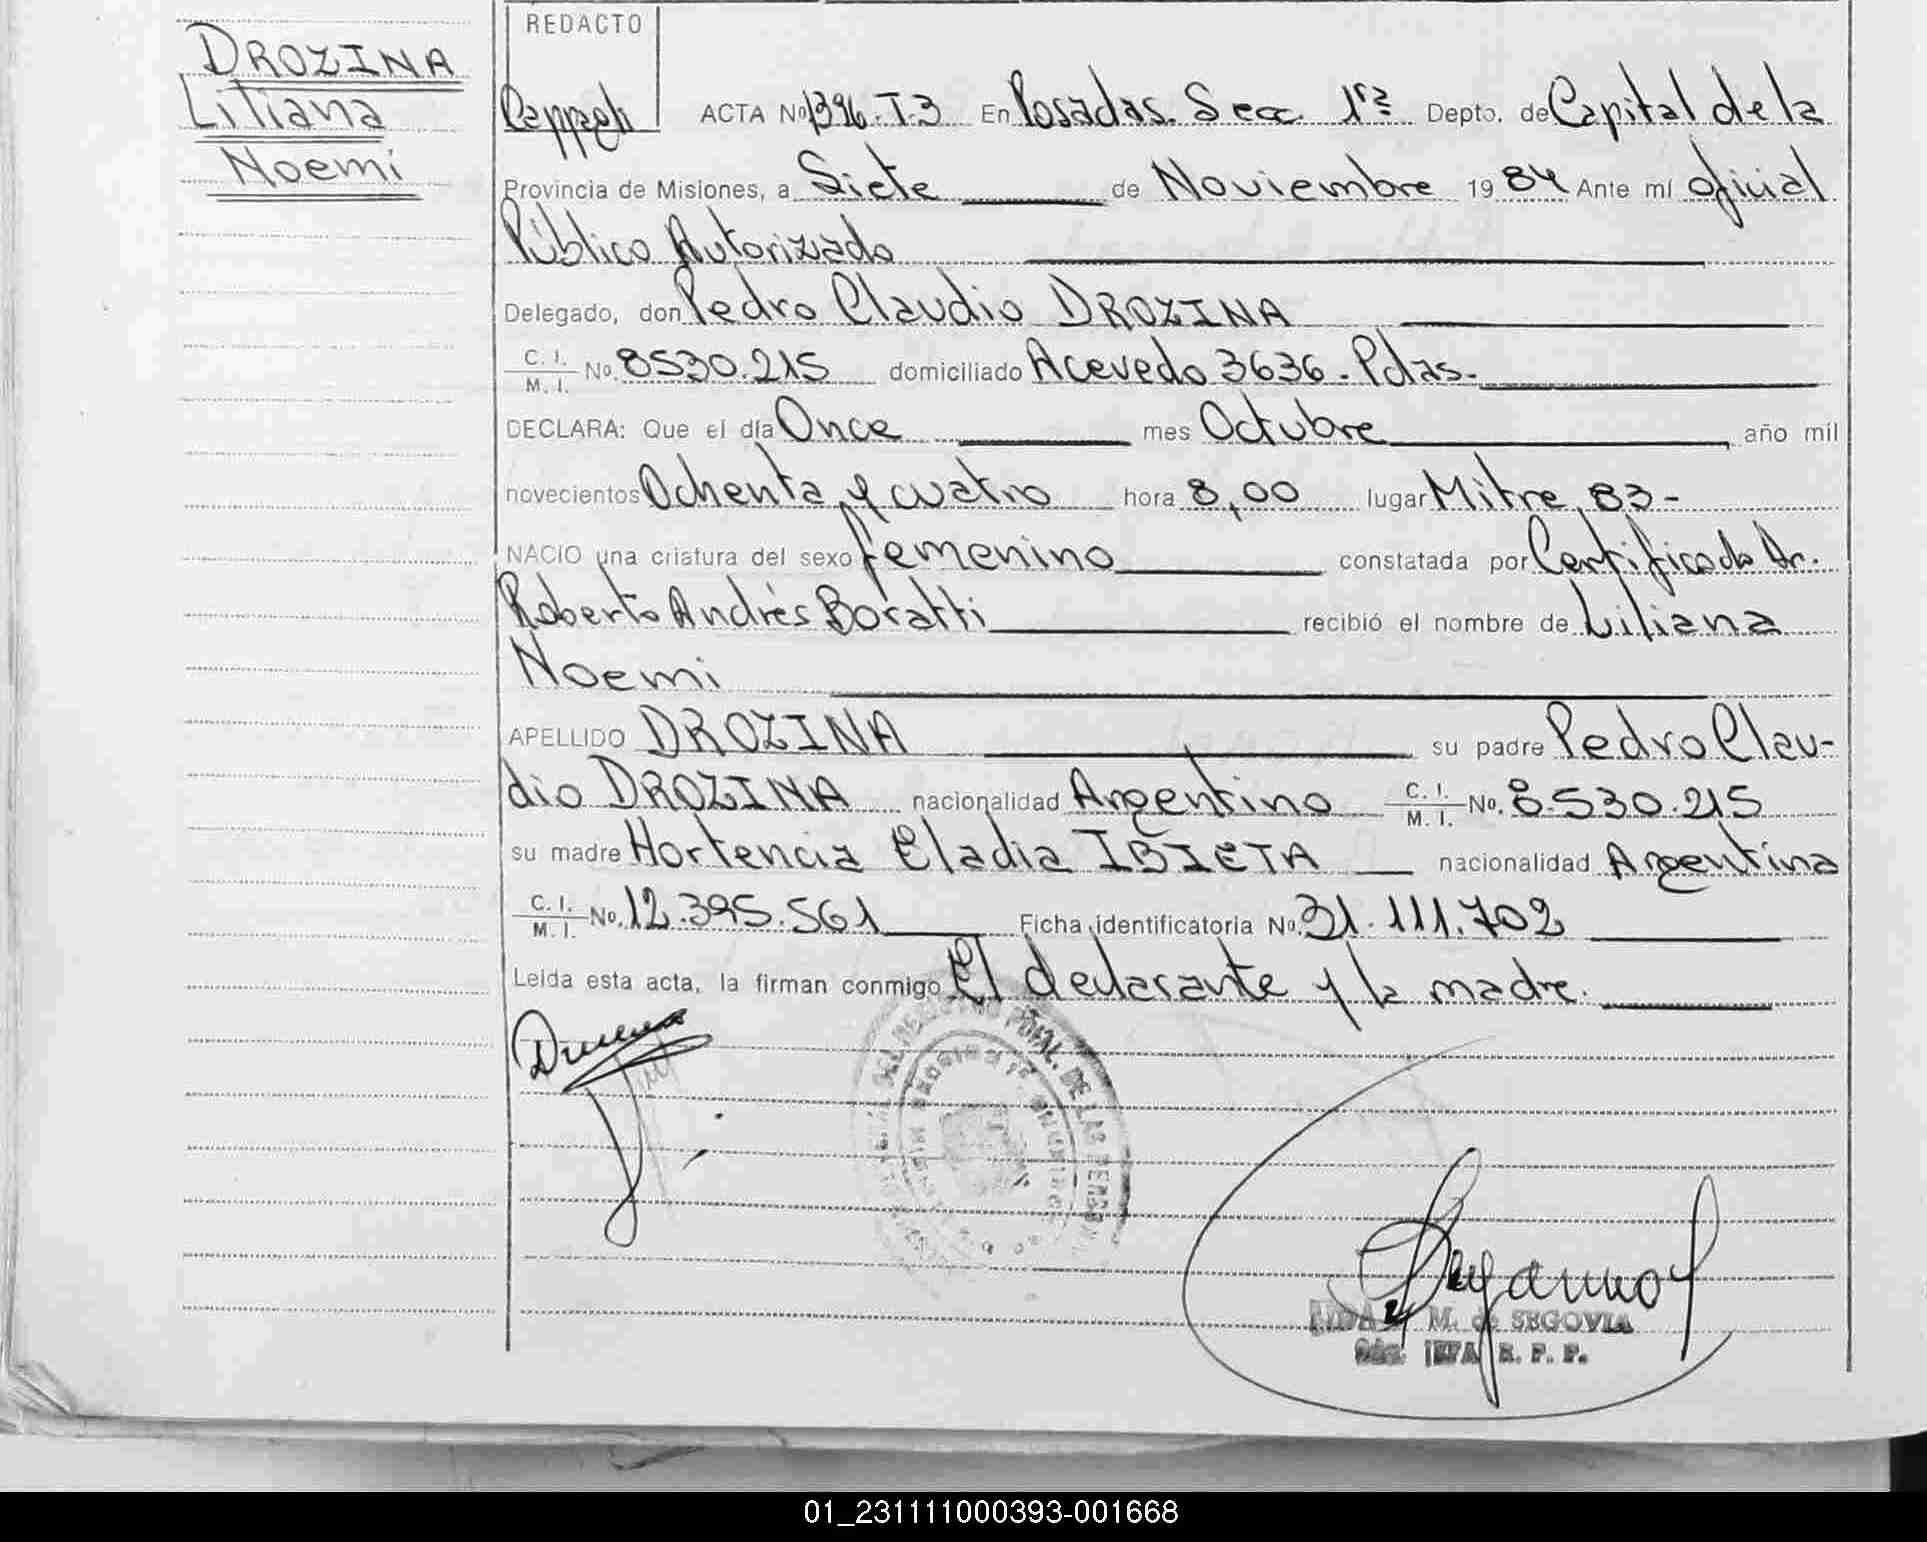 DROZINA
Liliana
Noemi
REDACTO
ACTA Nº 1396.T.3 En Posadas. Secc. 1ra Depto. de Capital de la
Provincia de Misiones, a Siete de Noviembre 1984 Ante mí oficial
Público Autorizado
Delegado, don Pedro Claudio DROZINA
C. I. M. I. No. 8530.215 domiciliado Acevedo 3636-Pdas-
DECLARA: Que el día Once mes Octubre año mil
novecientos Ochenta y cuatro hora 8,00 lugar Mitre 83-
NACIO una criatura del sexo femenino constatada por Certificado Dr.
Roberto Andrés Boratti recibió el nombre de Liliana
Noemi
APELLIDO DROZINA su padre Pedro Clau-
dio DROZINA nacionalidad Argentino C. I. M. I. No. 8.530.215
su madre Hortencia Eladia IBIETA nacionalidad Argentina
C. I. M. I. No. 12.395.561 Ficha identificatoria No. 31.111.702
Leída esta acta, la firman conmigo El declarante y la madre.
PCIAL. DE LAS PERSONAS
M. de SEGOVIA
R. P. P.
01_231111000393-001668